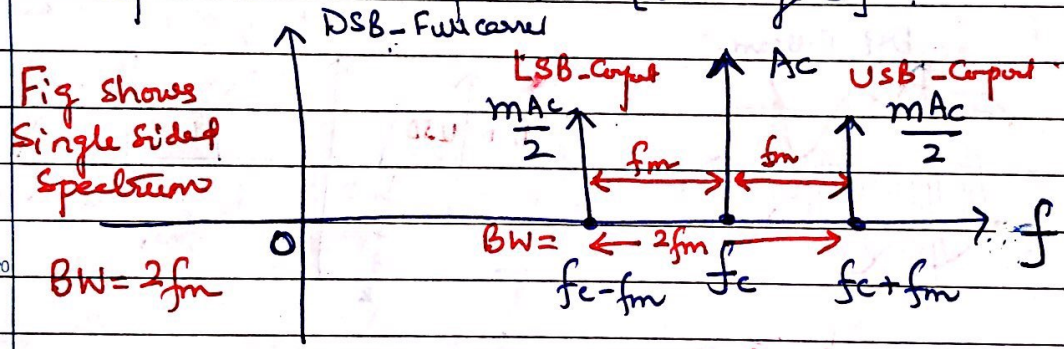 DSB-Full carrier
Fig shows
Single Sided
Spectrum
LSB-Compont
mAc
2
Ac
USB-Compont
mAc
2
fm
fm
0
f
BW= 2fm
BW= 2fm
fc-fm
fc
fc+fm